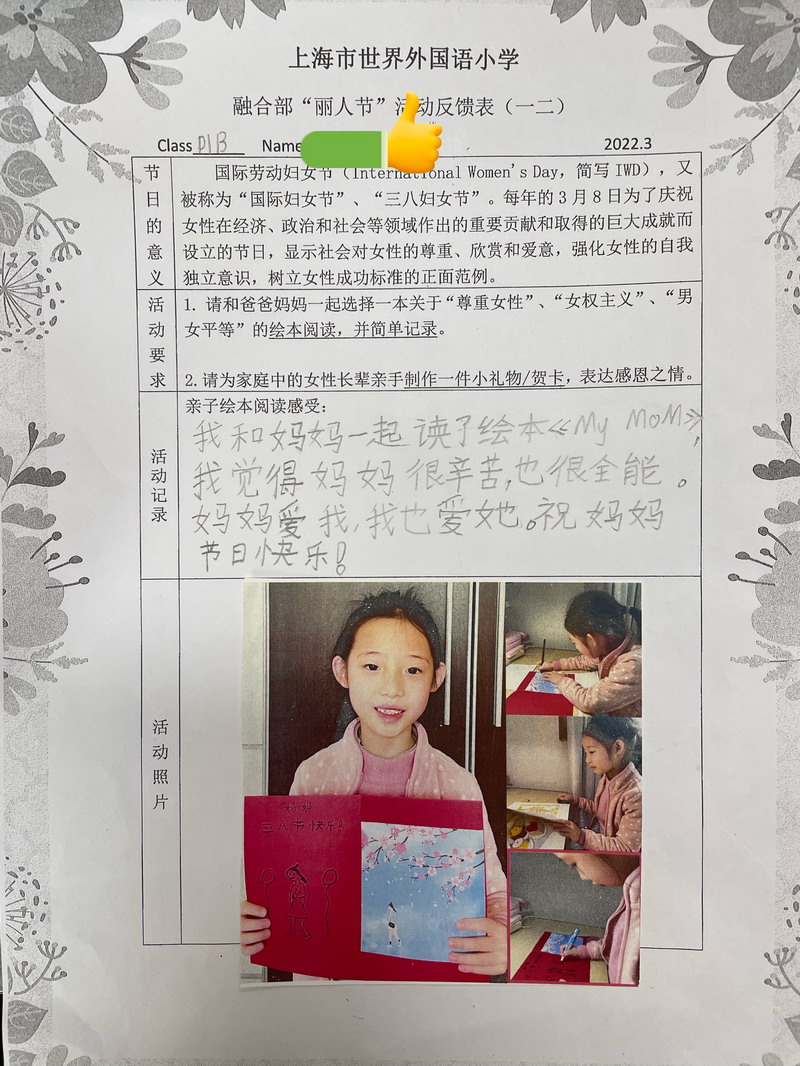 上海市世界外国语小学
融合部“丽人节”活动反馈表（一二）
Class P1B Name 2022.3
节日的意义
国际劳动妇女节（International Women's Day，简写 IWD），又
被称为“国际妇女节”、“三八妇女节”。每年的 3 月 8 日为了庆祝
女性在经济、政治和社会等领域作出的重要贡献和取得的巨大成就而
设立的节日，显示社会对女性的尊重、欣赏和爱意，强化女性的自我
独立意识，树立女性成功标准的正面范例。
活动要求
1. 请和爸爸妈妈一起选择一本关于“尊重女性”、“女权主义”、“男
女平等”的绘本阅读，并简单记录。
2.请为家庭中的女性长辈亲手制作一件小礼物/贺卡，表达感恩之情。
活动记录
亲子绘本阅读感受：
我和妈妈一起读了绘本《My MoM》，
我觉得妈妈很辛苦，也很全能。
妈妈爱我，我也爱她。祝妈妈
节日快乐！
活动照片
妈妈
三八节快乐！